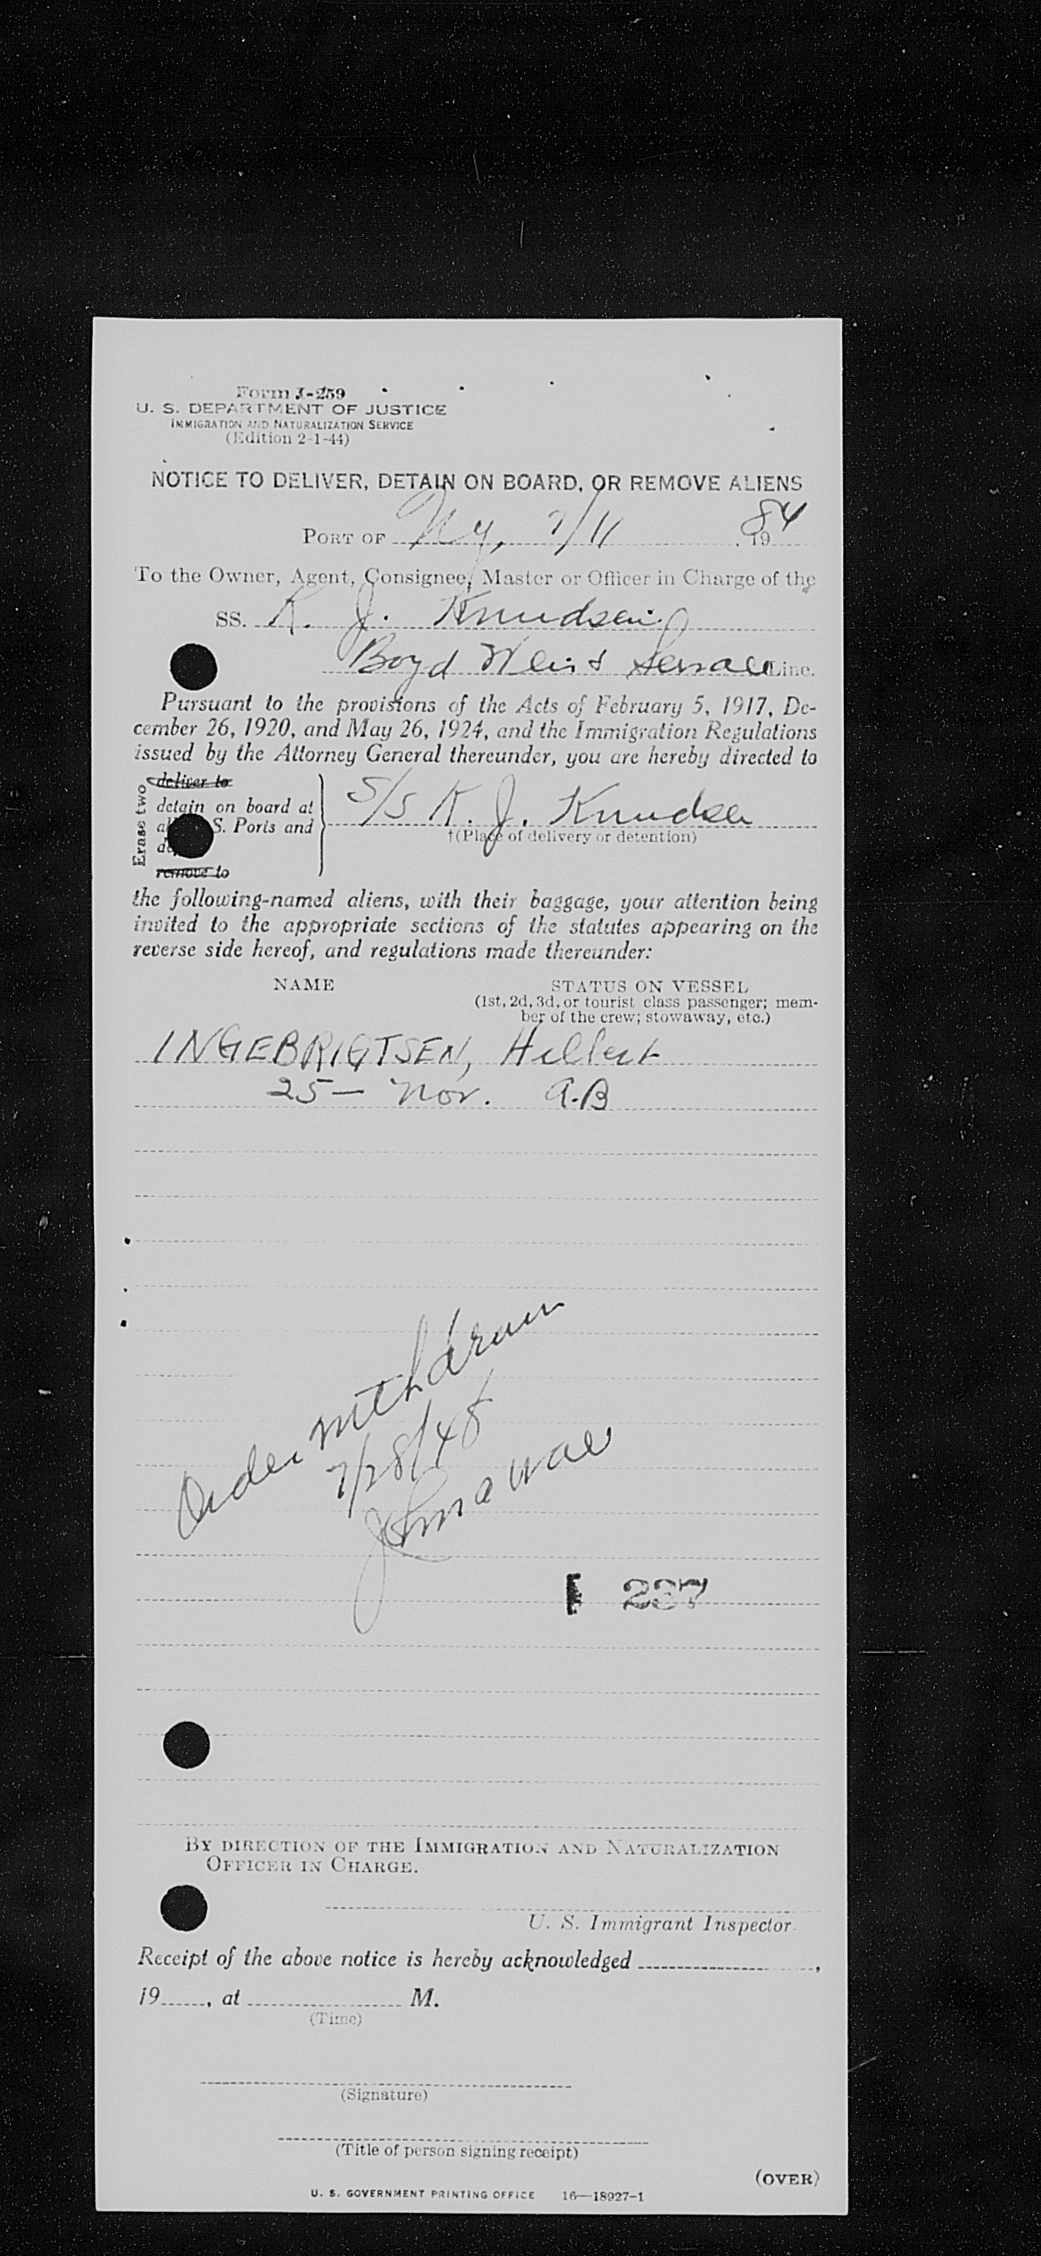 Form I-259
U. S. DEPARTMENT OF JUSTICE
IMMIGRATION AND NATURALIZATION SERVICE
(Edition 2-1-44)
NOTICE TO DELIVER, DETAIN ON BOARD, OR REMOVE ALIENS
PORT OF NY, 7/11 19
To the Owner, Agent, Consignee, Master or Officer in Charge of the
SS. K. J. Knudsen
Boyd Line.
Pursuant to the provisions of the Acts of February 5, 1917, De-
cember 26, 1920, and May 26, 1924, and the Immigration Regulations
issued by the Attorney General thereunder, you are hereby directed to
Erase two
deliver to
detain on board at
S. Ports and
remove to
S/S K. J. Knudsen
†(Place of delivery or detention)
the following-named aliens, with their baggage, your attention being
invited to the appropriate sections of the statutes appearing on the
reverse side hereof, and regulations made thereunder:
NAME STATUS ON VESSEL
(1st, 2d, 3d, or tourist class passenger; mem-
ber of the crew; stowaway, etc.)
INGEBRIGTSEN,
25 - Nor. A.B
Order withdrawn
7/28/48
237
BY DIRECTION OF THE IMMIGRATION AND NATURALIZATION
OFFICER IN CHARGE.
U. S. Immigrant Inspector
Receipt of the above notice is hereby acknowledged ,
19 , at M.
(Time)
(Signature)
(Title of person signing receipt)
(OVER)
U. S. GOVERNMENT PRINTING OFFICE 16—18927-1